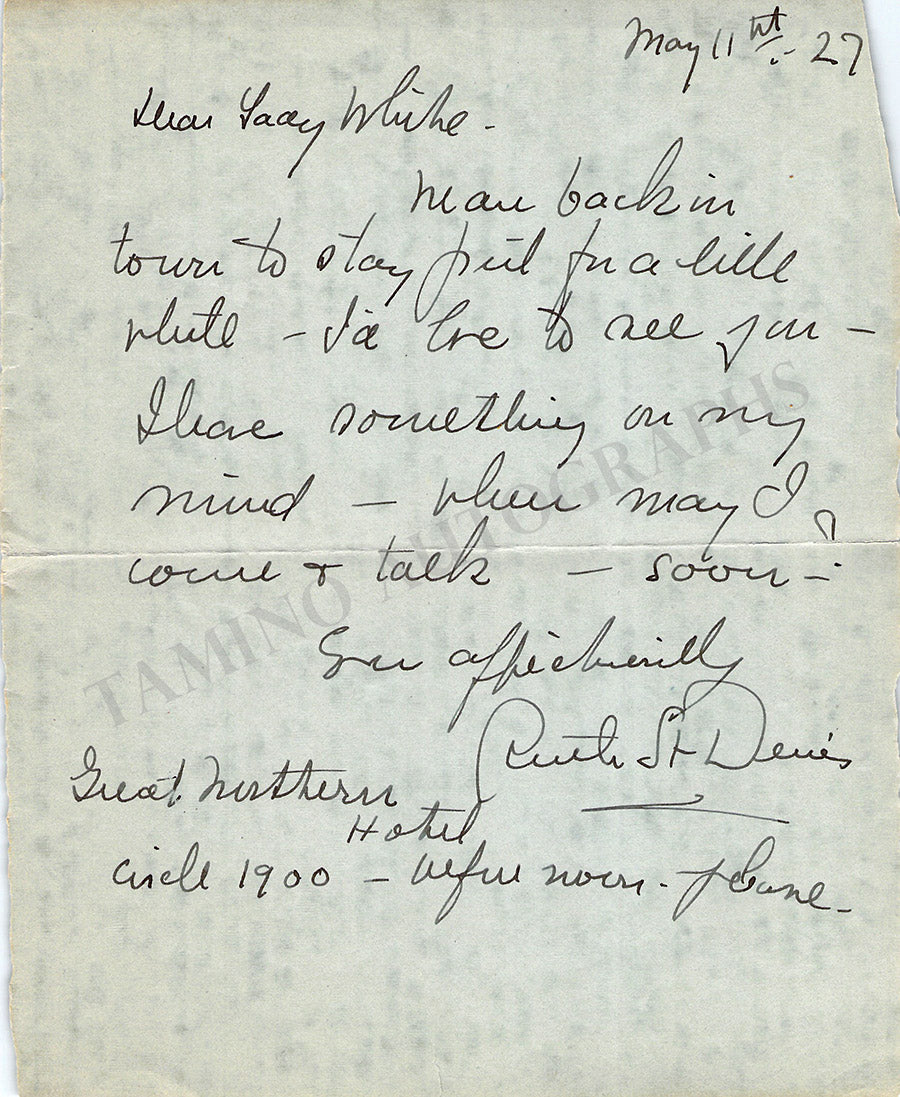 May 11th - 27
Dear Lady White -
We are back in
town to stay put for a little
while - I'd love to see you -
I have something on my
mind - when may I
come & talk - soon - ?
Ever affectionately
Ruth St Denis
Great Northern
Hotel
Circle 1900 - before noon - phone -
TAMINO AUTOGRAPHS